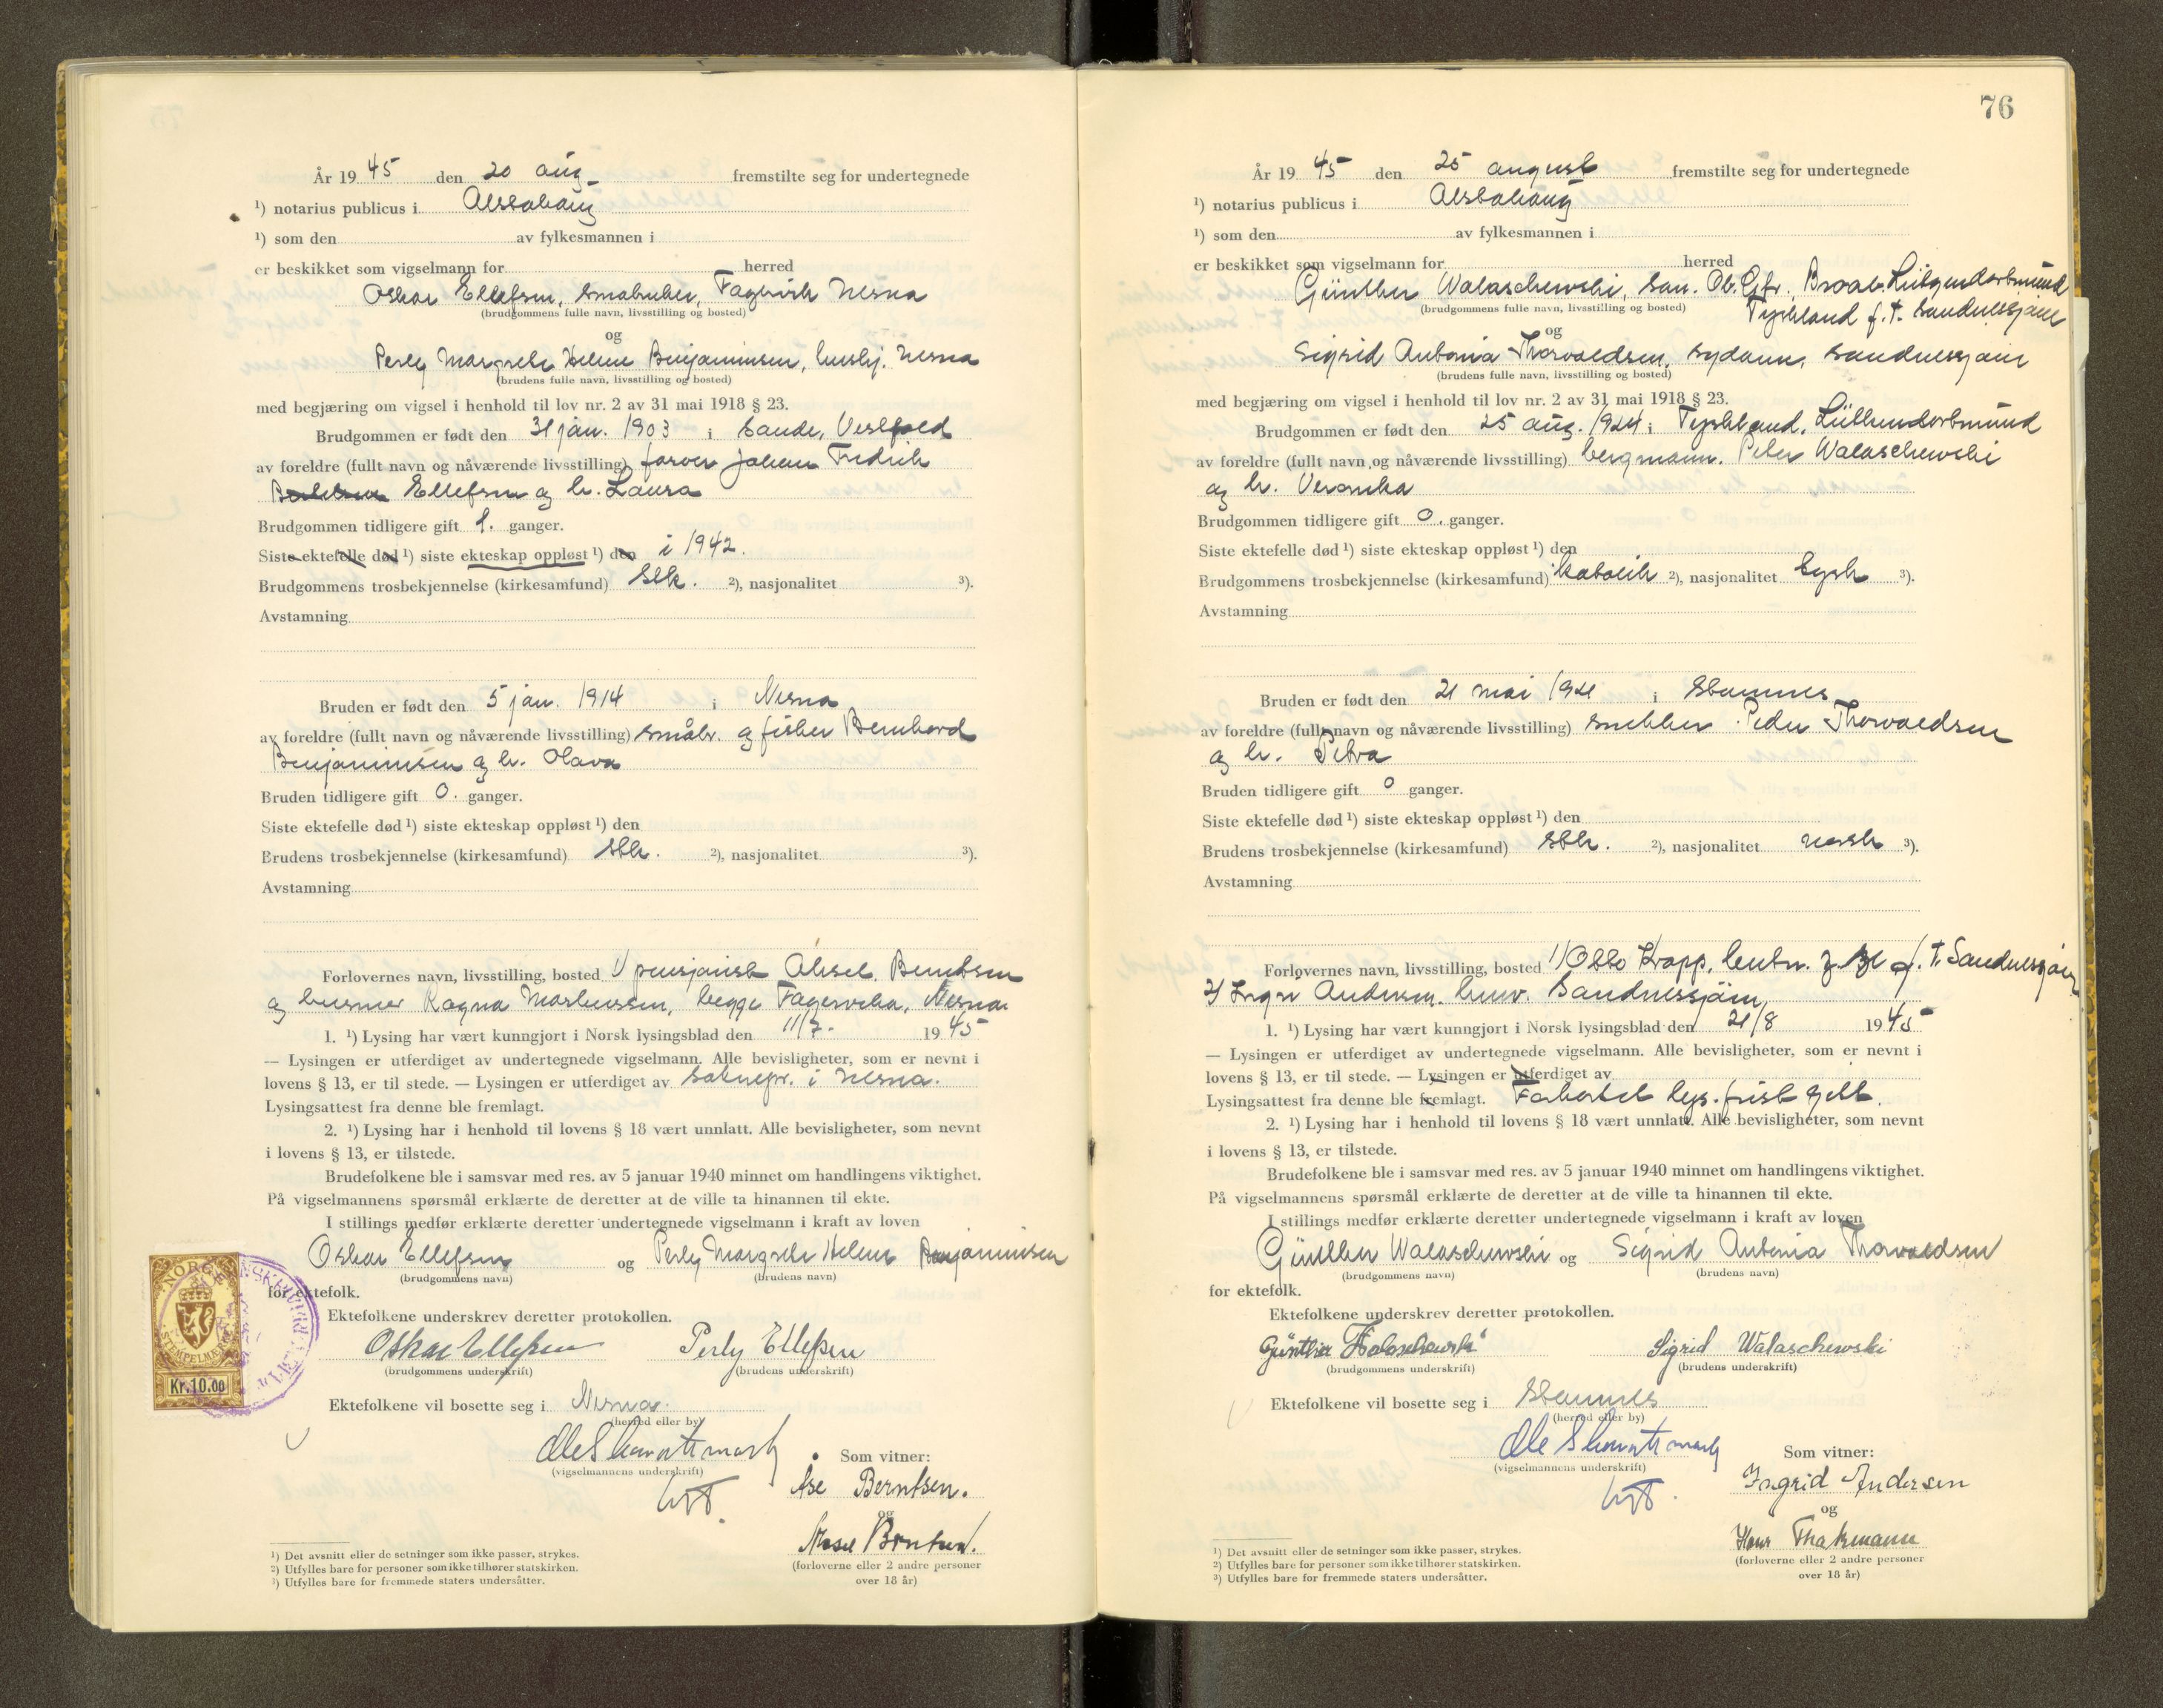 År 1945 den 20 aug. fremstilte seg for undertegnede
¹) notarius publicus i Alstahaug
¹) som den av fylkesmannen i
er beskikket som vigselmann for herred
Oskar Ellefsen, småbruker, Fagervik Nesna
(brudgommens fulle navn, livsstilling og bosted)
og
Perly Margrete Helene Benjaminsen, hushj. Nesna
(brudens fulle navn, livsstilling og bosted)
med begjæring om vigsel i henhold til lov nr. 2 av 31 mai 1918 § 23.
Brudgommen er født den 31 jan. 1903 i Sande, Vestfold
av foreldre (fullt navn og nåværende livsstilling) farver Johan Fredrik
Ellefsen og h. Laura
Brudgommen tidligere gift 1. ganger.
Siste ektefelle død ¹) siste ekteskap oppløst ¹) den i 1942.
Brudgommens trosbekjennelse (kirkesamfund) Stk. ²), nasjonalitet ³).
Avstamning
Bruden er født den 5 jan. 1914 i Nesna
av foreldre (fullt navn og nåværende livsstilling) småbr. og fisker Bernhard
Benjaminsen og h. Olava
Bruden tidligere gift 0. ganger.
Siste ektefelle død ¹) siste ekteskap oppløst ¹) den
Brudens trosbekjennelse (kirkesamfund) Stk. ²), nasjonalitet ³).
Avstamning
Forlovernes navn, livsstilling, bosted 1/ pensjonist Aksel Berntsen
og husmor Ragna Markussen, begge Fagervika, Nesna.
1. ¹) Lysing har vært kunngjort i Norsk lysingsblad den 11/7. 1945
— Lysingen er utferdiget av undertegnede vigselmann. Alle bevisligheter, som er nevnt i
lovens § 13, er til stede. — Lysingen er utferdiget av soknepr. i Nesna.
Lysingsattest fra denne ble fremlagt.
2. ¹) Lysing har i henhold til lovens § 18 vært unnlatt. Alle bevisligheter, som nevnt
i lovens § 13, er tilstede.
Brudefolkene ble i samsvar med res. av 5 januar 1940 minnet om handlingens viktighet.
På vigselmannens spørsmål erklærte de deretter at de ville ta hinannen til ekte.
I stillings medfør erklærte deretter undertegnede vigselmann i kraft av loven
Oskar Ellefsen og Perly Margrete Helene Benjaminsen
(brudgommens navn) (brudens navn)
for ektefolk.
Ektefolkene underskrev deretter protokollen.
Oskar Ellefsen Perly Ellefsen
(brudgommens underskrift) (brudens underskrift)
NORGE
STEMPELMERKE
Kr. 10.00
Ektefolkene vil bosette seg i Nesna.
(herred eller by)
(vigselmannens underskrift)
Som vitner:
Åse Berntsen.
og
Aksel Berntsen.
(forloverne eller 2 andre personer
over 18 år)
¹) Det avsnitt eller de setninger som ikke passer, strykes.
²) Utfylles bare for personer som ikke tilhører statskirken.
³) Utfylles bare for fremmede staters undersåtter.
76
År 1945 den 25 august fremstilte seg for undertegnede
¹) notarius publicus i Alstahaug
¹) som den av fylkesmannen i
er beskikket som vigselmann for herred
Günther Walaschewski, San. Ob. Gfr. Lütgendortmund
(brudgommens fulle navn, livsstilling og bosted) Tyskland f. t. Sandnessjøen
og
Sigrid Antonia Thorvaldsen, sydame, Sandnessjøen
(brudens fulle navn, livsstilling og bosted)
med begjæring om vigsel i henhold til lov nr. 2 av 31 mai 1918 § 23.
Brudgommen er født den 25 aug. 1924 i Tyskland, Lüttendortmund
av foreldre (fullt navn og nåværende livsstilling) bergmann. Peter Walaschewski
og h. Veronika
Brudgommen tidligere gift 0. ganger.
Siste ektefelle død ¹) siste ekteskap oppløst ¹) den
Brudgommens trosbekjennelse (kirkesamfund) katolik ²), nasjonalitet tysk ³).
Avstamning
Bruden er født den 21 mai 1921 i Stamnes
av foreldre (fullt navn og nåværende livsstilling) snekker Peder Thorvaldsen
og h. Petra
Bruden tidligere gift 0 ganger.
Siste ektefelle død ¹) siste ekteskap oppløst ¹) den
Brudens trosbekjennelse (kirkesamfund) Stk. ²), nasjonalitet norsk ³).
Avstamning
Forlovernes navn, livsstilling, bosted 1/ Otto Krapp, leutn. f. t. Sandnessjøen
2/ Andersen. Sandnessjøen,
1. ¹) Lysing har vært kunngjort i Norsk lysingsblad den 21/8 1945
— Lysingen er utferdiget av undertegnede vigselmann. Alle bevisligheter, som er nevnt i
lovens § 13, er til stede. — Lysingen er utferdiget av
Lysingsattest fra denne ble fremlagt. Forkortet lys. frist gitt.
2. ¹) Lysing har i henhold til lovens § 18 vært unnlatt. Alle bevisligheter, som nevnt
i lovens § 13, er tilstede.
Brudefolkene ble i samsvar med res. av 5 januar 1940 minnet om handlingens viktighet.
På vigselmannens spørsmål erklærte de deretter at de ville ta hinannen til ekte.
I stillings medfør erklærte deretter undertegnede vigselmann i kraft av loven
Günther Walaschewski og Sigrid Antonia Thorvaldsen
(brudgommens navn) (brudens navn)
for ektefolk.
Ektefolkene underskrev deretter protokollen.
Günther Walaschewski Sigrid Walaschewski
(brudgommens underskrift) (brudens underskrift)
Ektefolkene vil bosette seg i Stamnes
(herred eller by)
(vigselmannens underskrift)
Som vitner:
Ingrid Andersen
og
Hans
(forloverne eller 2 andre personer
over 18 år)
¹) Det avsnitt eller de setninger som ikke passer, strykes.
²) Utfylles bare for personer som ikke tilhører statskirken.
³) Utfylles bare for fremmede staters undersåtter.